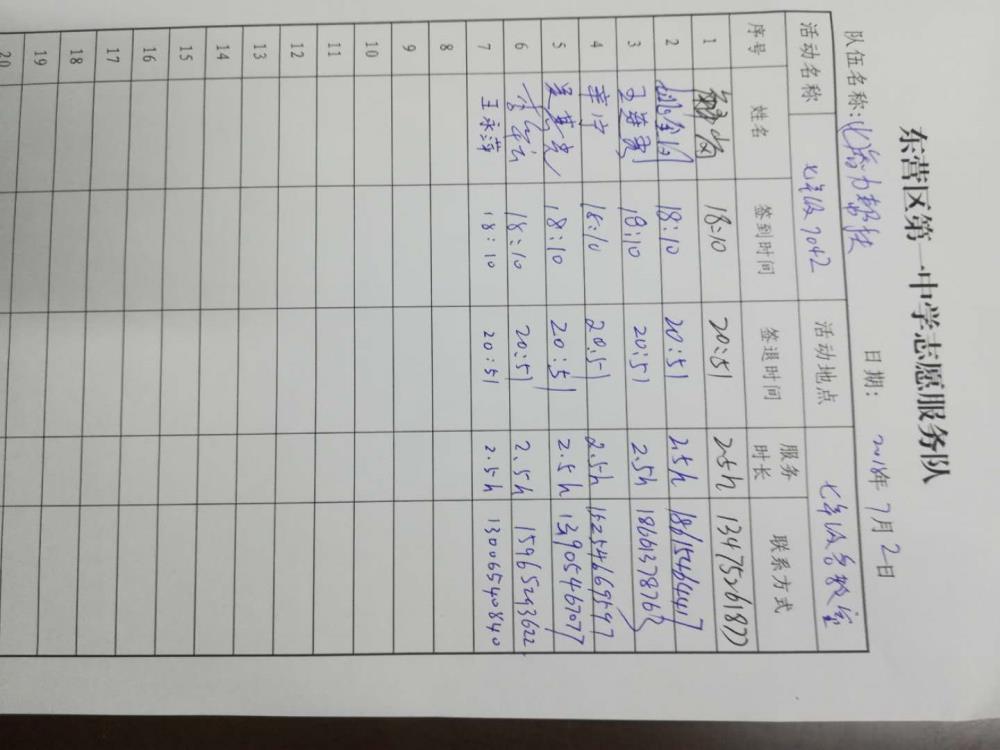 东营区第一中学志愿服务队
队伍名称: 日期: 2018年7月2日
活动名称 七年级7042 活动地点 七年级各教室
序号 姓名 签到时间 签退时间 服务时长 联系方式
1 18:10 20:51 2.5h 13475261877
2 18:10 20:51 2.5h 18615464417
3 18:10 20:51 2.5h 18661378763
4 18:10 20:51 2.5h 15254669597
5 18:10 20:51 2.5h 13905467077
6 18:10 20:51 2.5h 15965293622
7 王永萍 18:10 20:51 2.5h 13006540840
8
9
10
11
12
13
14
15
16
17
18
19
20